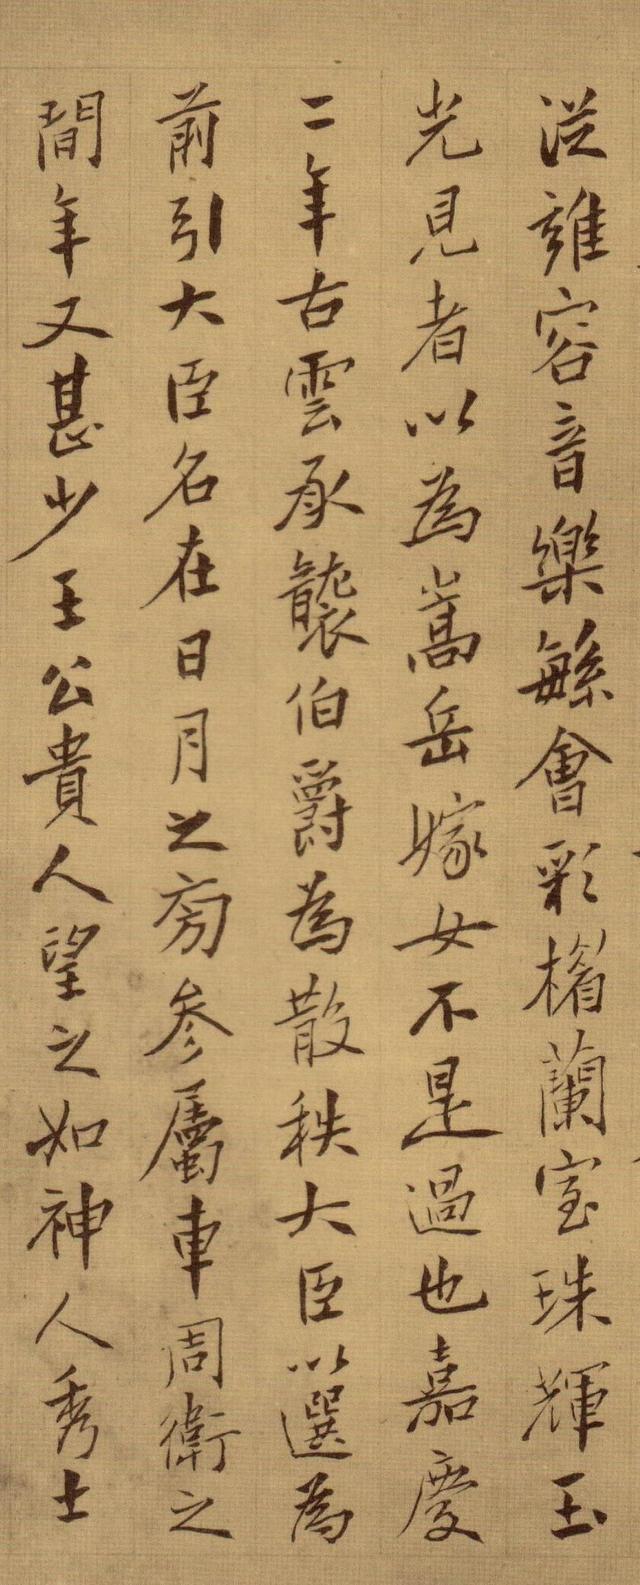 從雍容音樂繁會彩楣蘭室珠輝玉
光見者以為嵩岳嫁女不是過也嘉慶
二年古雲承襲伯爵為散秩大臣以選為
前引大臣名在日月之旁參屬車周衛之
間年又甚少王公貴人望之如神人秀士